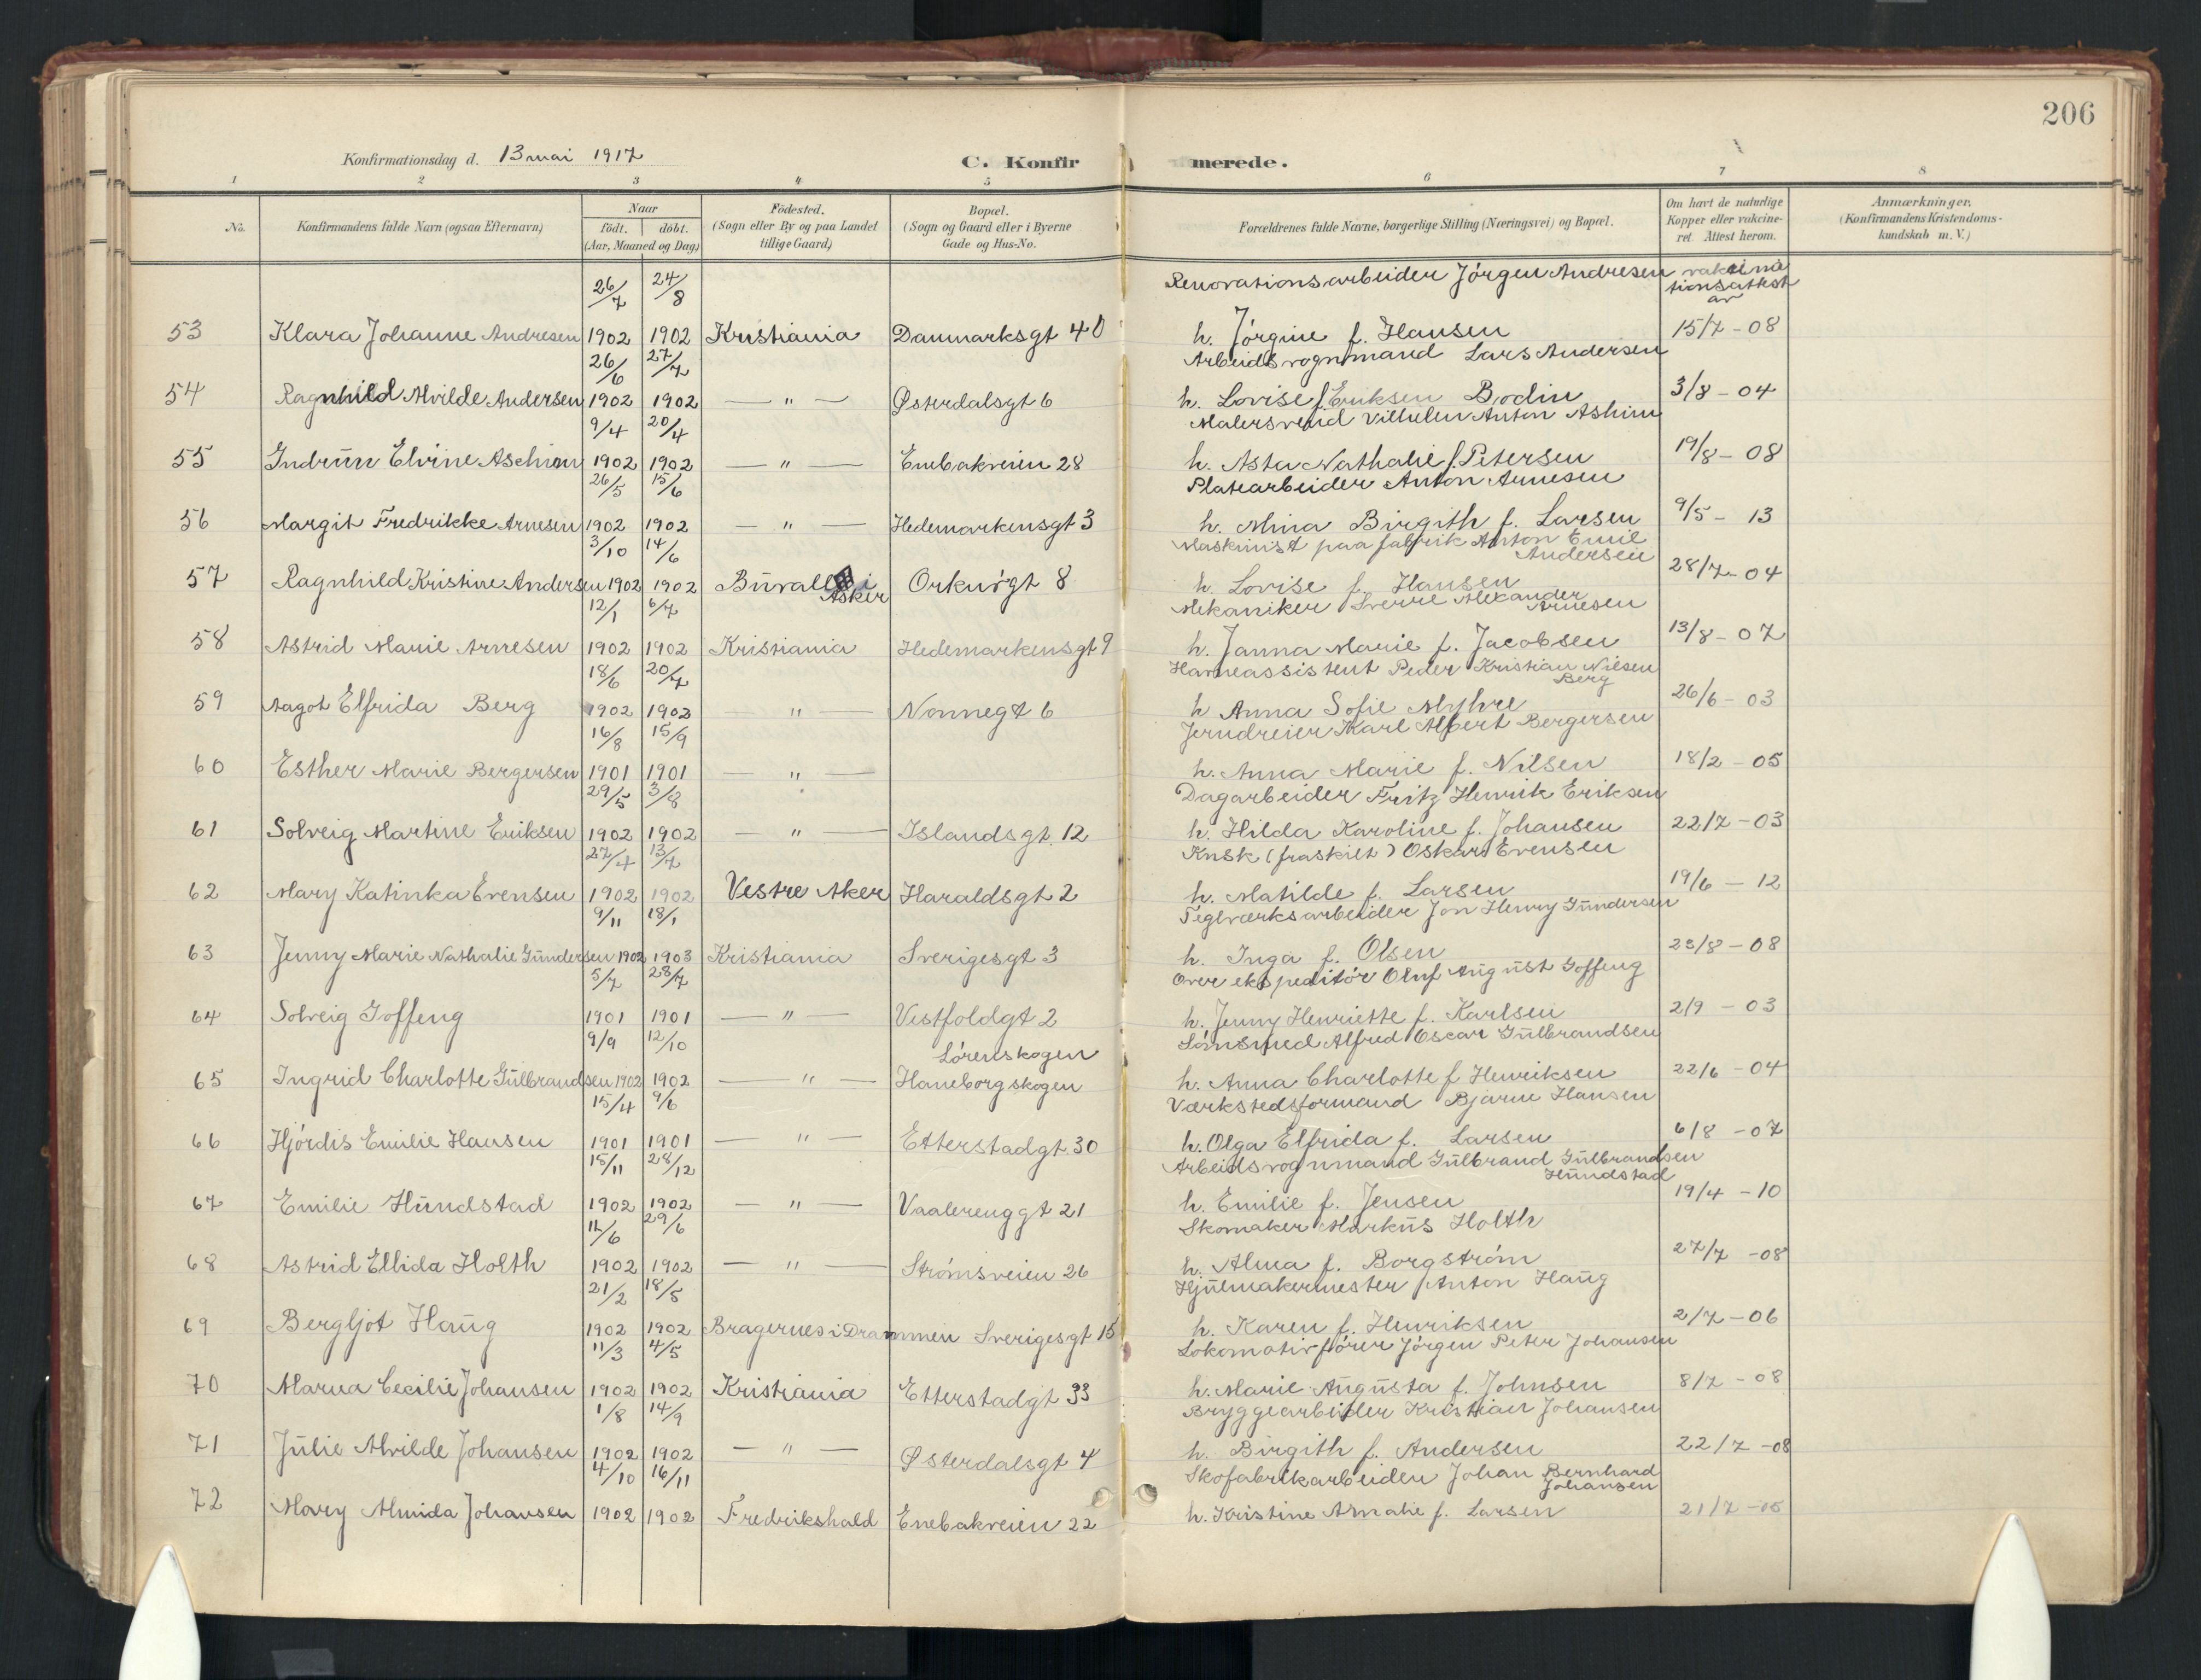 206
Konfirmationsdag d. 13 mai 1917
C. Konfirmerede.
1 2 3 4 5 6 7 8
No.
Konfirmandens fulde Navn (ogsaa Efternavn)
Naar
födt. döbt.
(Aar, Maaned og Dag)
Födested.
(Sogn eller By og paa Landet
tillige Gaard)
Bopæl.
(Sogn og Gaard eller i Byerne
Gade og Hus-No.
Forældrenes fulde Navne, borgerlige Stilling (Næringsvei) og Bopæl.
Om havt de naturlige
Kopper eller vakcine-
ret. Attest herom.
Anmærkninger.
(Konfirmandens Kristendoms-
kundskab m. V.)
26/7 24/8 Renovationsarbeider Jörgen Andresen vakcina
tionsattest
av
53 Klara Johanne Andresen 1902 1902 Kristiania Danmarksgt 40 h. Jörgine f. Hansen 15/7 - 08
26/6 27/7 Arbeidsvognmand Lars Andersen
54 Ragnhild Alvilde Andersen 1902 1902 — " — Østerdalsgt 6 h. Lovise f. Eriksen Bodin 3/8 - 04
9/4 20/4 Malersvend Vilhelm Anton Ashim
55 Gudrun Elvine Aschim 1902 1902 — " — Enebakveien 28 h. Asta Nathalie f. Petersen 19/8 - 08
26/5 15/6 Platearbeider Anton Arnesen
56 Margit Fredrikke Arnesen 1902 1902 — " — Hedemarkensgt 3 h. Mina Birgith f. Larsen 9/5 - 13
3/10 14/6 Maskinist paa fabrik Anton Emil
Andersen
57 Ragnhild Kristine Andersen 1902 1902 Burall i Asker Orknögt 8 h. Lovise f. Hansen 28/7 - 04
12/1 6/4 Mekaniker Sverre Alexander
Arnesen
58 Astrid Marie Arnesen 1902 1902 Kristiania Hedemarkensgt 9 h. Janna Marie f. Jacobsen 13/8 - 07
18/6 20/7 Havneassistent Peder Kristian Nilsen
Berg
59 Aagot Elfrida Berg 1902 1902 " — Nonnegt 6 h Anna Sofie Myhre 26/6 - 03
16/8 15/9 Jerndreier Karl Albert Bergersen
60 Esther Marie Bergersen 1901 1901 — " — h. Anna Marie f. Nilsen 18/2 - 05
29/5 3/8 Dagarbeider Fritz Henrik Eriksen
61 Solveig Martine Eriksen 1902 1902 — " — Islandsgt. 12 h. Hilda Karoline f. Johansen 22/7 - 03
27/4 13/7 Kusk (fraskilt) Oskar Evensen
62 Mary Katinka Evensen 1902 1902 Vestre Aker Haraldsgt 2 h. Matilde f. Larsen 19/6 - 12
9/11 18/1 Teglværksarbeider Jon Henry Gundersen
63 Jenny Marie Nathalie Gundersen 1902 1903 Kristiania Sverigesgt 3 h. Inga f. Olsen 23/8 - 08
5/7 28/7 Over ekspeditör Oluf August Goffeng
64 Solveig Goffeng 1901 1901 — " — Vestfoldgt 2 h. Jenny Henriette f. Karlsen 2/9 - 03
9/9 12/10 Lörenskogen Alfred Oscar Gulbrandsen
65 Ingrid Charlotte Gulbrandsen 1902 1902 — " — Haneborgskogen h. Anna Charlotte f Henriksen 22/6 - 04
15/4 9/6 Værkstedsformand Bjarne Hansen
66 Hjördis Emilie Hansen 1901 1901 — " — Etterstadgt. 30 h. Olga Elfrida f. Larsen 6/8 - 07
15/11 28/12 Arbeidsvognmand Gulbrand Gulbrandsen
Hundstad
67 Emilie Hundstad 1902 1902 — " — Vaalerenggt 21 h. Emilie f. Jensen 19/4 - 10
11/6 29/6 Skomaker Markus Holth
68 Astrid Ellida Holth 1902 1902 — " — Strømsveien 26 h. Alma f. Borgström 27/7 - 08
21/2 18/5 Hjulmakermester Anton Haug
69 Bergljot Haug 1902 1902 Bragernes i Drammen Sverigesgt 15 h. Karen f. Henriksen 2/7 - 06
11/3 4/5 Lokomotivförer Jörgen Peter Johansen
70 Marna Cecilie Johansen 1902 1902 Kristiania Etterstadgt 33 h. Marie Augusta f. Johnsen 8/7 - 08
1/8 14/9 Bryggearbeider Kristian Johansen
71 Julie Alvilde Johansen 1902 1902 — " — Østerdalsgt 4 h. Birgith f. Andersen 22/7 - 08
4/10 16/11 Skofabrikarbeider Johan Bernhard
Johansen
72 Mary Almida Johansen 1902 1902 Fredrikshald Enebakveien 22 h. Kristine Amalie f. Larsen 21/7 - 15